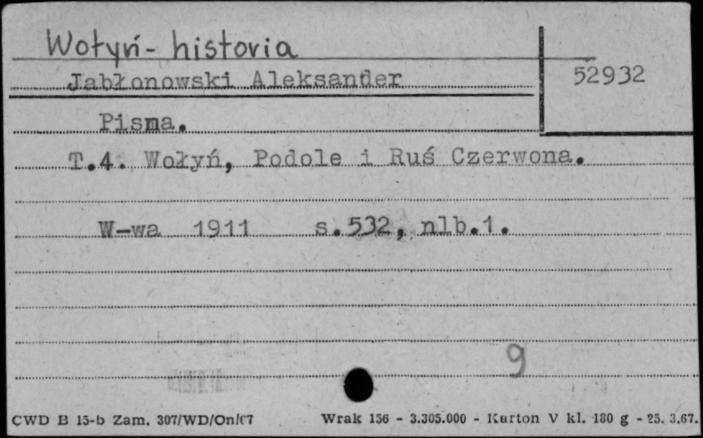 Wołyń - historia
Jabłonowski Aleksander
52932
Pisma.
T.4. Wołyń, Podole i Ruś Czerwona.
W-wa 1911 s.532, nlb.1.
9
CWD B 15-b Zam. 307/WD/On/67 Wrak 156 - 3.305.000 - Karton V kl. 180 g - 25. 3.67.